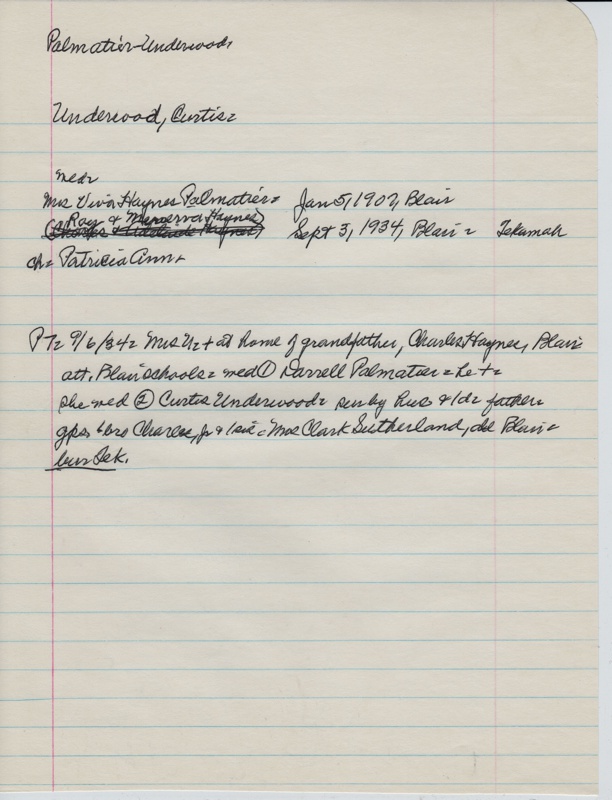 Palmatier-Underwood,
Underwood, Curtis=
med=
Mrs Viva Haynes Palmatier= Jan 5, 1907, Blair
Roy & Menerva Haynes
Sept 3, 1934, Blair= Tekamah
ch= Patricia Ann+
PT= 9/6/34= Mrs U= + at home of grandfather, Charles Haynes, Blair=
att. Blair schools= med ① Darrell Palmatier= he +=
she med ② Curtis Underwood= sur by hus & 1d= father=
gps & bro Charles, Jr & 1 sis= Mrs Clark Sutherland, all Blair=
bur Tek.